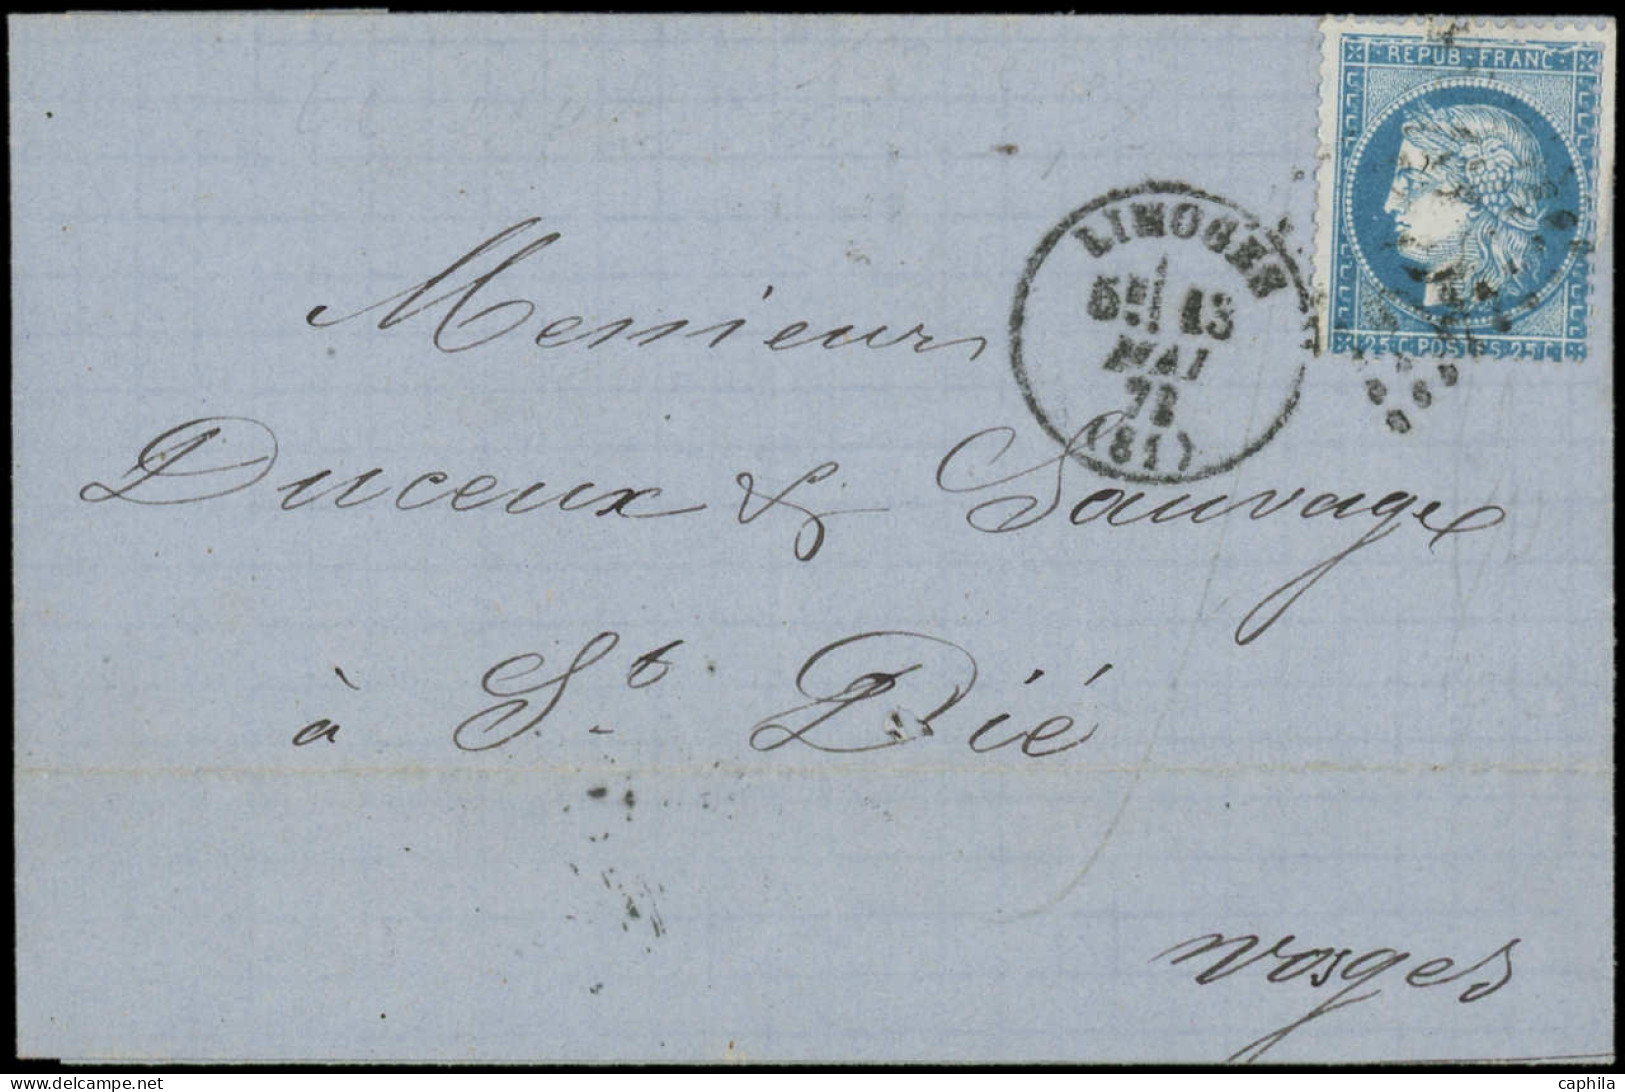 REPUB · FRANC
25 C POSTES 25 C
LIMOGES
5E 13
MAI
72
(81)
Messieurs
Duceux & Sauvage
à St Dié
Vosges
caphila